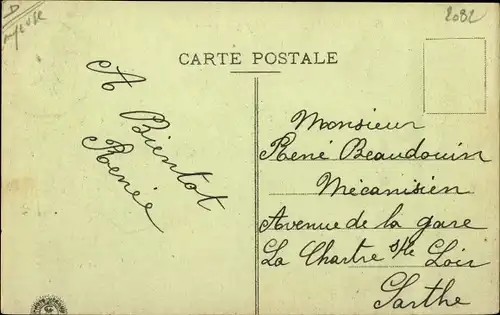 2082
CARTE POSTALE
A Bientot
Renée
Monsieur
René Beaudouin
Mécanisién
Avenue de la gare
La Chartre s/le Loir
Sarthe